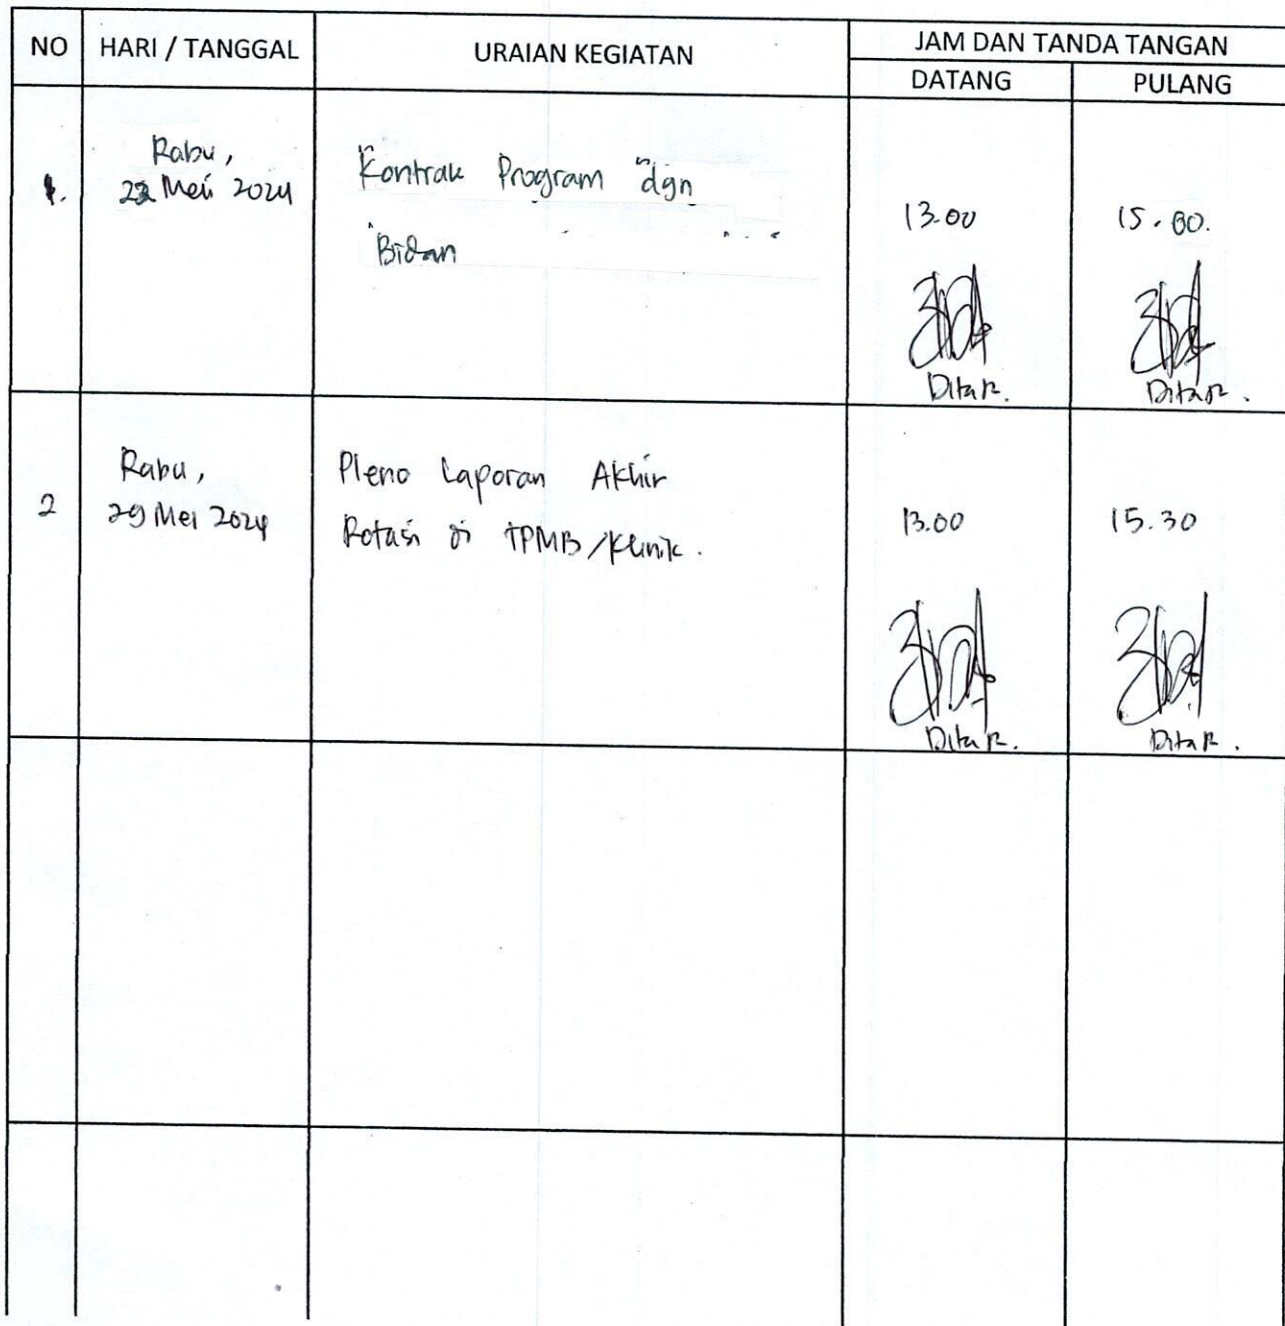 NO HARI / TANGGAL URAIAN KEGIATAN JAM DAN TANDA TANGAN
DATANG PULANG
1. Rabu,
22 Mei 2024
Kontrak Program dgn
Bidan
13.00 15.00.
Dita R. Dita R.
2 Rabu,
29 Mei 2024
Pleno Laporan Akhir
Rotasi di TPMB/Klinik.
13.00 15.30
Dita R. Dita R.